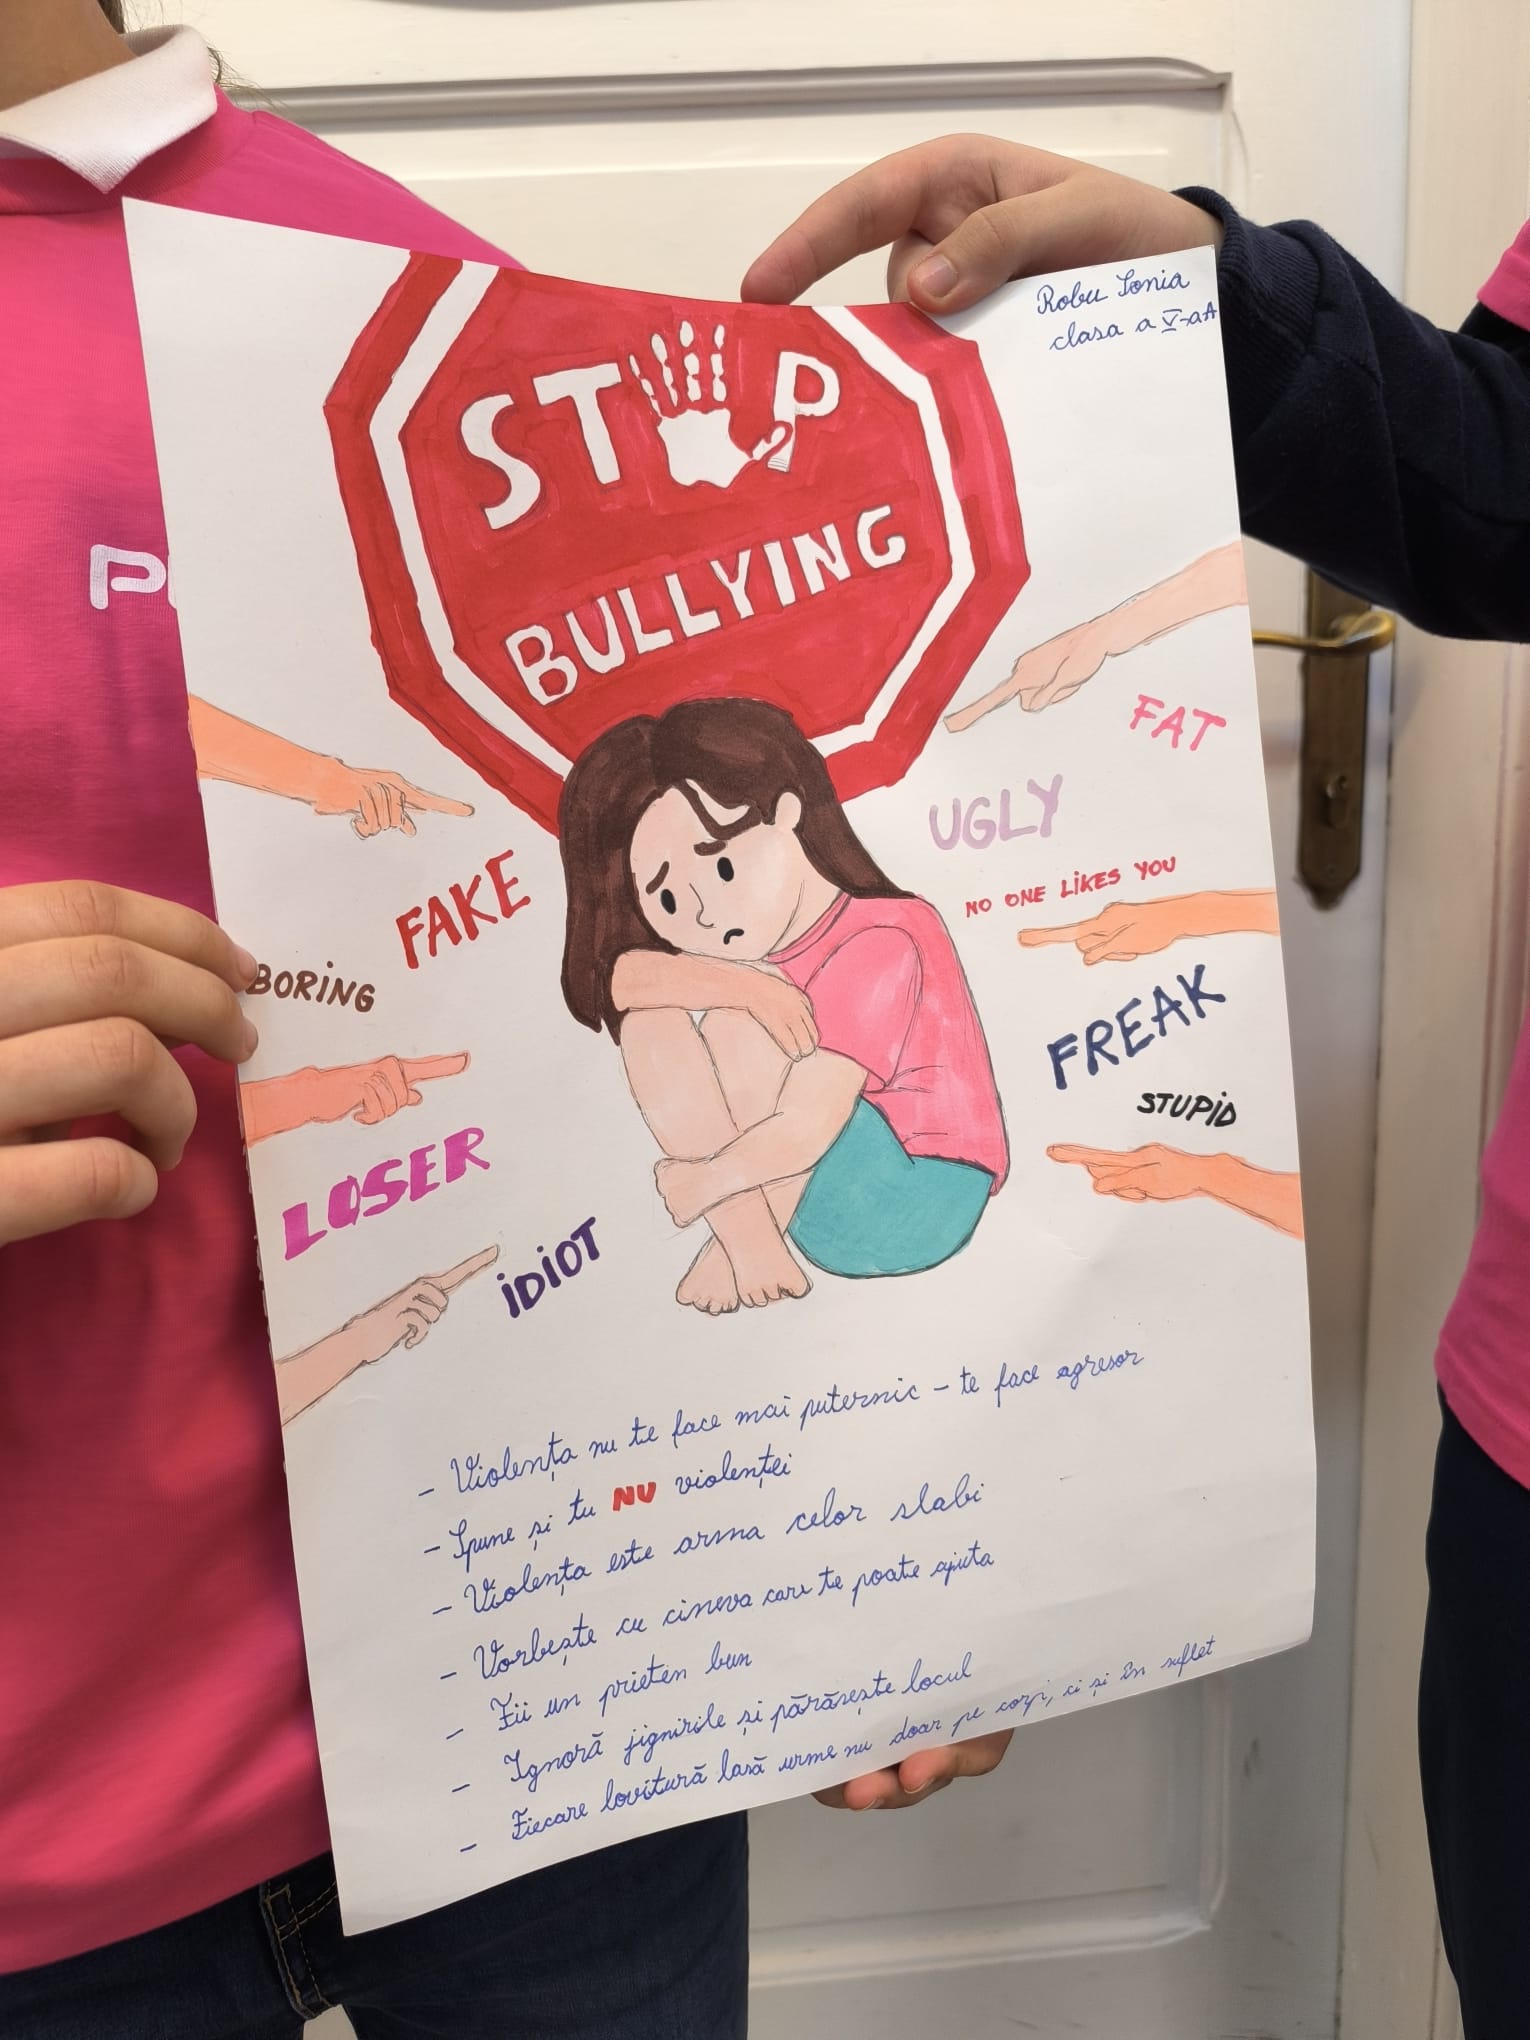 Robu Sonia
clasa a V-a A
STOP
BULLYING
FAT
UGLY
NO ONE LIKES YOU
FAKE
BORING
FREAK
STUPID
LOSER
IDIOT
- Violența nu te face mai puternic - te face agresor
- Spune și tu NU violenței
- Violența este arma celor slabi
- Vorbește cu cineva care te poate ajuta
- Fii un prieten bun
- Ignoră jignirile și părăsește locul
- Fiecare lovitură lasă urme nu doar pe corp, ci și în suflet